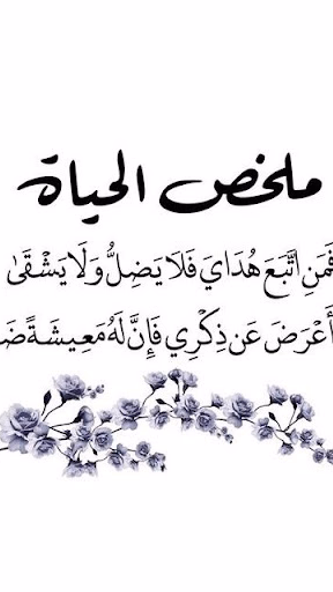 ملخص الحياة
فَمَنِ اتَّبَعَ هُدَايَ فَلَا يَضِلُّ وَلَا يَشْقَىٰ
أَعْرَضَ عَن ذِكْرِي فَإِنَّ لَهُ مَعِيشَةً